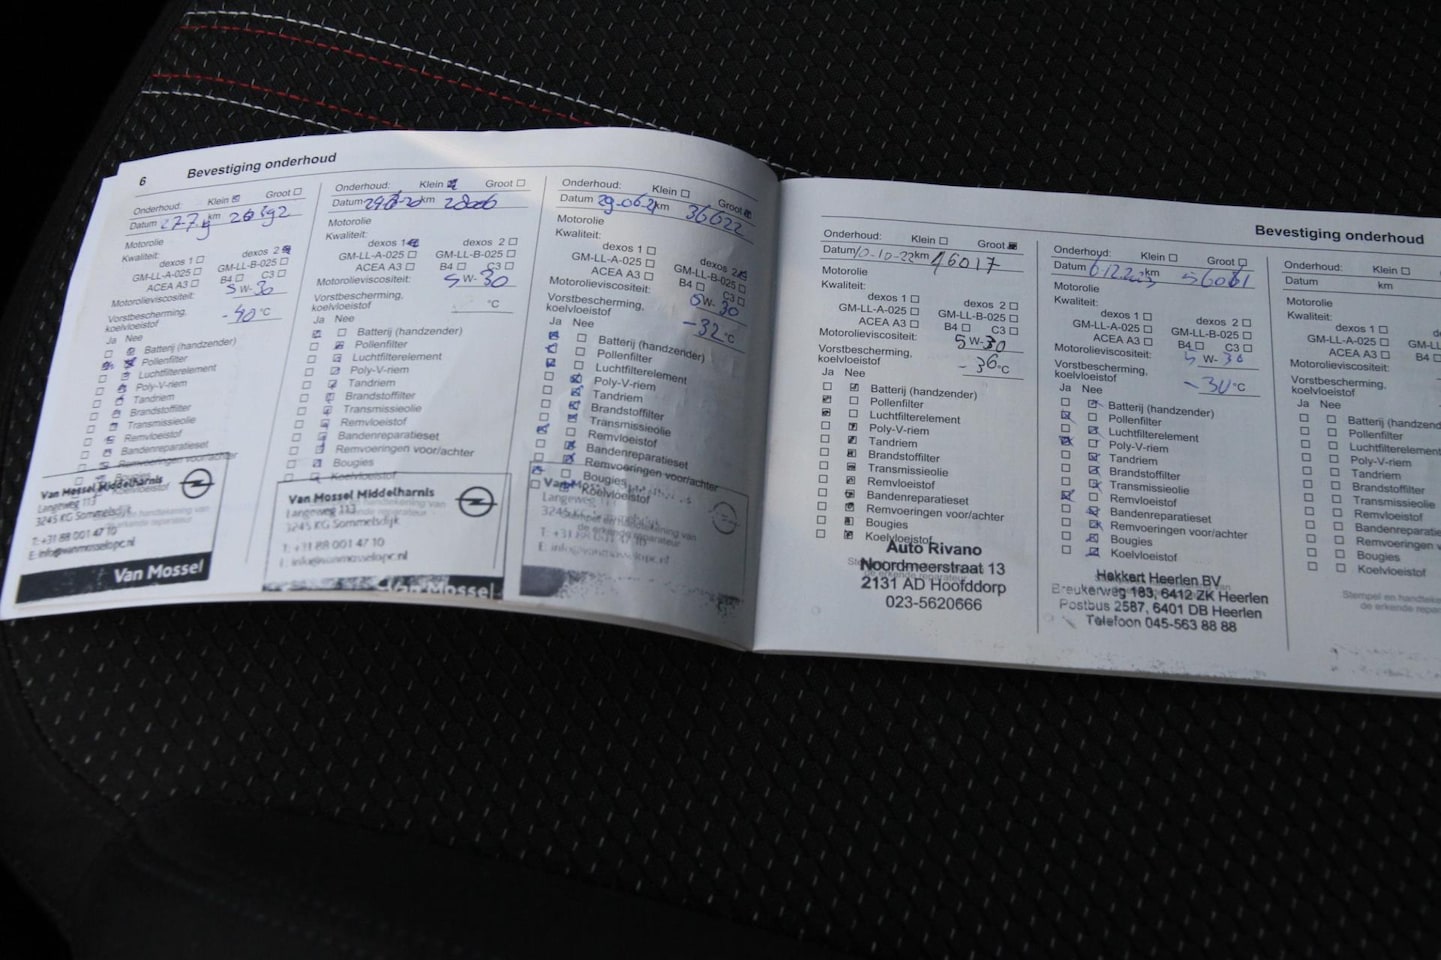 6 Bevestiging onderhoud
Onderhoud: Klein Groot
Datum km
Motorolie
Kwaliteit:
dexos 1 dexos 2
GM-LL-A-025 GM-LL-B-025
ACEA A3 B4 C3
Motorolieviscositeit: 5 W-30
Vorstbescherming,
koelvloeistof -40 °C
Ja Nee
Batterij (handzender)
Pollenfilter
Luchtfilterelement
Poly-V-riem
Tandriem
Brandstoffilter
Transmissieolie
Remvloeistof
Bandenreparatieset
Van Mossel Middelharnis
Langeweg 113
3245 KG Sommelsdijk
T: +31 88 001 47 10
E: info@vanmosselopc.nl
Van Mossel
Onderhoud: Klein Groot
Datum km
Motorolie
Kwaliteit:
dexos 1 dexos 2
GM-LL-A-025 GM-LL-B-025
ACEA A3 B4 C3
Motorolieviscositeit: 5 W-30
Vorstbescherming,
koelvloeistof °C
Ja Nee
Batterij (handzender)
Pollenfilter
Luchtfilterelement
Poly-V-riem
Tandriem
Brandstoffilter
Transmissieolie
Remvloeistof
Bandenreparatieset
Remvoeringen voor/achter
Bougies
Koelvloeistof
Van Mossel Middelharnis
Langeweg 113
3245 KG Sommelsdijk
T: +31 88 001 47 10
E: info@vanmosselopc.nl
Van Mossel
Onderhoud: Klein Groot
Datum 29-06-21 km 36622
Motorolie
Kwaliteit:
dexos 1 dexos 2
GM-LL-A-025 GM-LL-B-025
ACEA A3 B4 C3
Motorolieviscositeit: 5 W-30
Vorstbescherming,
koelvloeistof -32 °C
Ja Nee
Batterij (handzender)
Pollenfilter
Luchtfilterelement
Poly-V-riem
Tandriem
Brandstoffilter
Transmissieolie
Remvloeistof
Bandenreparatieset
Remvoeringen voor/achter
Bougies
Koelvloeistof
Langeweg 113
Bevestiging onderhoud
Onderhoud: Klein Groot
Datum 10-10-22 km 46017
Motorolie
Kwaliteit:
dexos 1 dexos 2
GM-LL-A-025 GM-LL-B-025
ACEA A3 B4 C3
Motorolieviscositeit: 5 W-30
Vorstbescherming,
koelvloeistof -36 °C
Ja Nee
Batterij (handzender)
Pollenfilter
Luchtfilterelement
Poly-V-riem
Tandriem
Brandstoffilter
Transmissieolie
Remvloeistof
Bandenreparatieset
Remvoeringen voor/achter
Bougies
Koelvloeistof
Auto Rivano
Noordmeerstraat 13
2131 AD Hoofddorp
023-5620666
Onderhoud: Klein Groot
Datum km 56061
Motorolie
Kwaliteit:
dexos 1 dexos 2
GM-LL-A-025 GM-LL-B-025
ACEA A3 B4 C3
Motorolieviscositeit: 5 W-30
Vorstbescherming,
koelvloeistof -30 °C
Ja Nee
Batterij (handzender)
Pollenfilter
Luchtfilterelement
Poly-V-riem
Tandriem
Brandstoffilter
Transmissieolie
Remvloeistof
Bandenreparatieset
Remvoeringen voor/achter
Bougies
Koelvloeistof
Hekkert Heerlen BV
Breukerweg 183, 6412 ZK Heerlen
Postbus 2587, 6401 DB Heerlen
Telefoon 045-563 88 88
Onderhoud: Klein
Datum km
Motorolie
Kwaliteit:
dexos 1
GM-LL-A-025
ACEA A3 B4
Motorolieviscositeit:
Vorstbescherming,
koelvloeistof
Ja Nee
Batterij (handzend
Pollenfilter
Luchtfilterelement
Poly-V-riem
Tandriem
Brandstoffilter
Transmissieolie
Remvloeistof
Bandenreparatie
Remvoeringen v
Bougies
Koelvloeistof
Stempel en handteke
de erkende repar